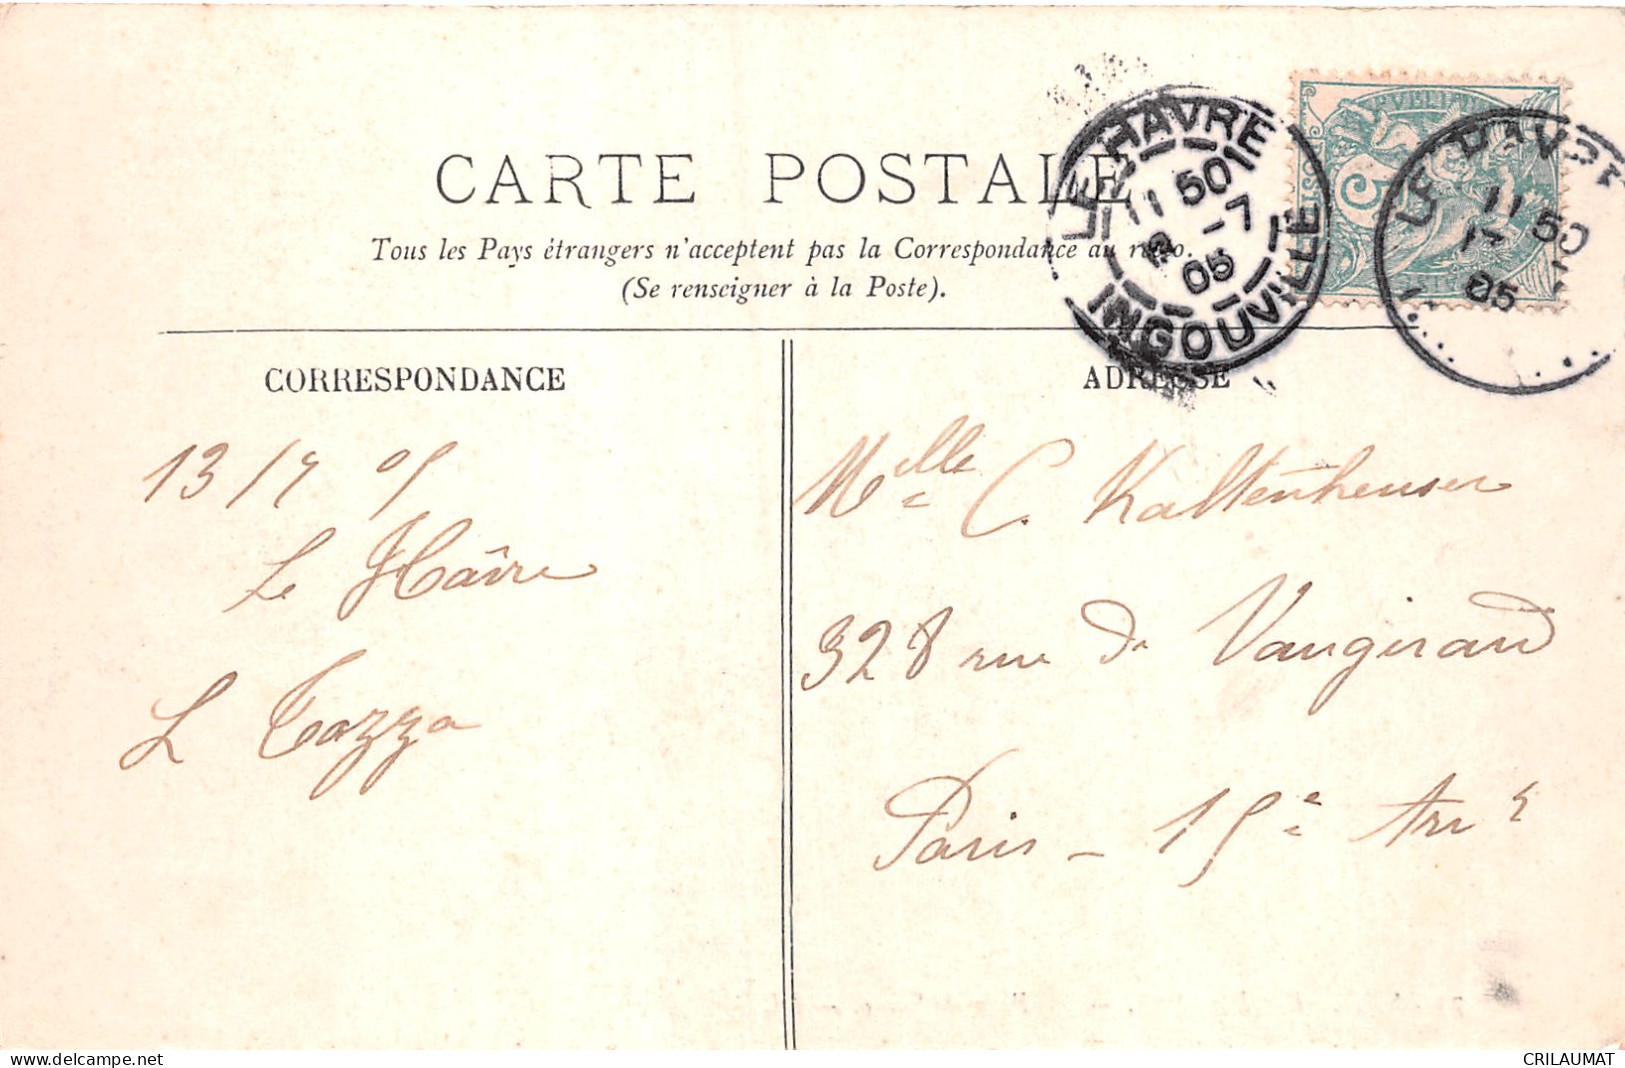 CARTE POSTALE
Tous les Pays étrangers n'acceptent pas la Correspondance au recto.
(Se renseigner à la Poste).
LE HAVRE
11 50
-7
05
INGOUVILLE
LE HAVRE
11 50
05
CORRESPONDANCE
13/7 05
Le Hâvre
L Tazza
ADRESSE
Melle C. Kaltenheuser
328 rue de Vaugirard
Paris - 15e Arrt
delcampe.net
CRILAUMAT